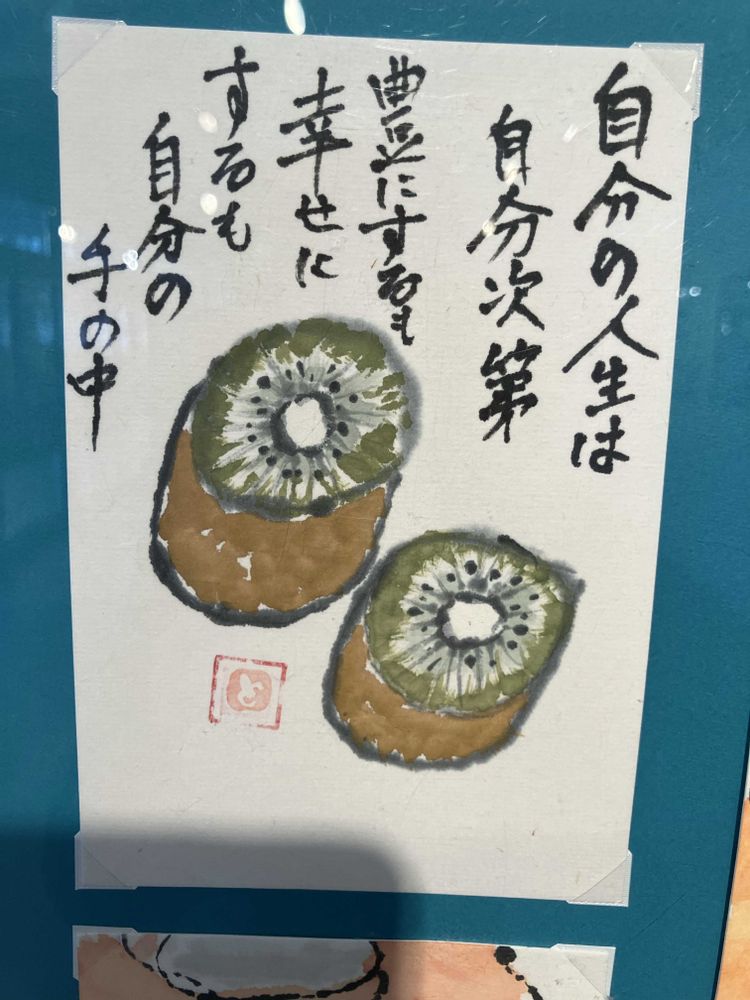 自分の人生は
自分次第
豊にするも
幸せに
するも
自分の
手の中
と